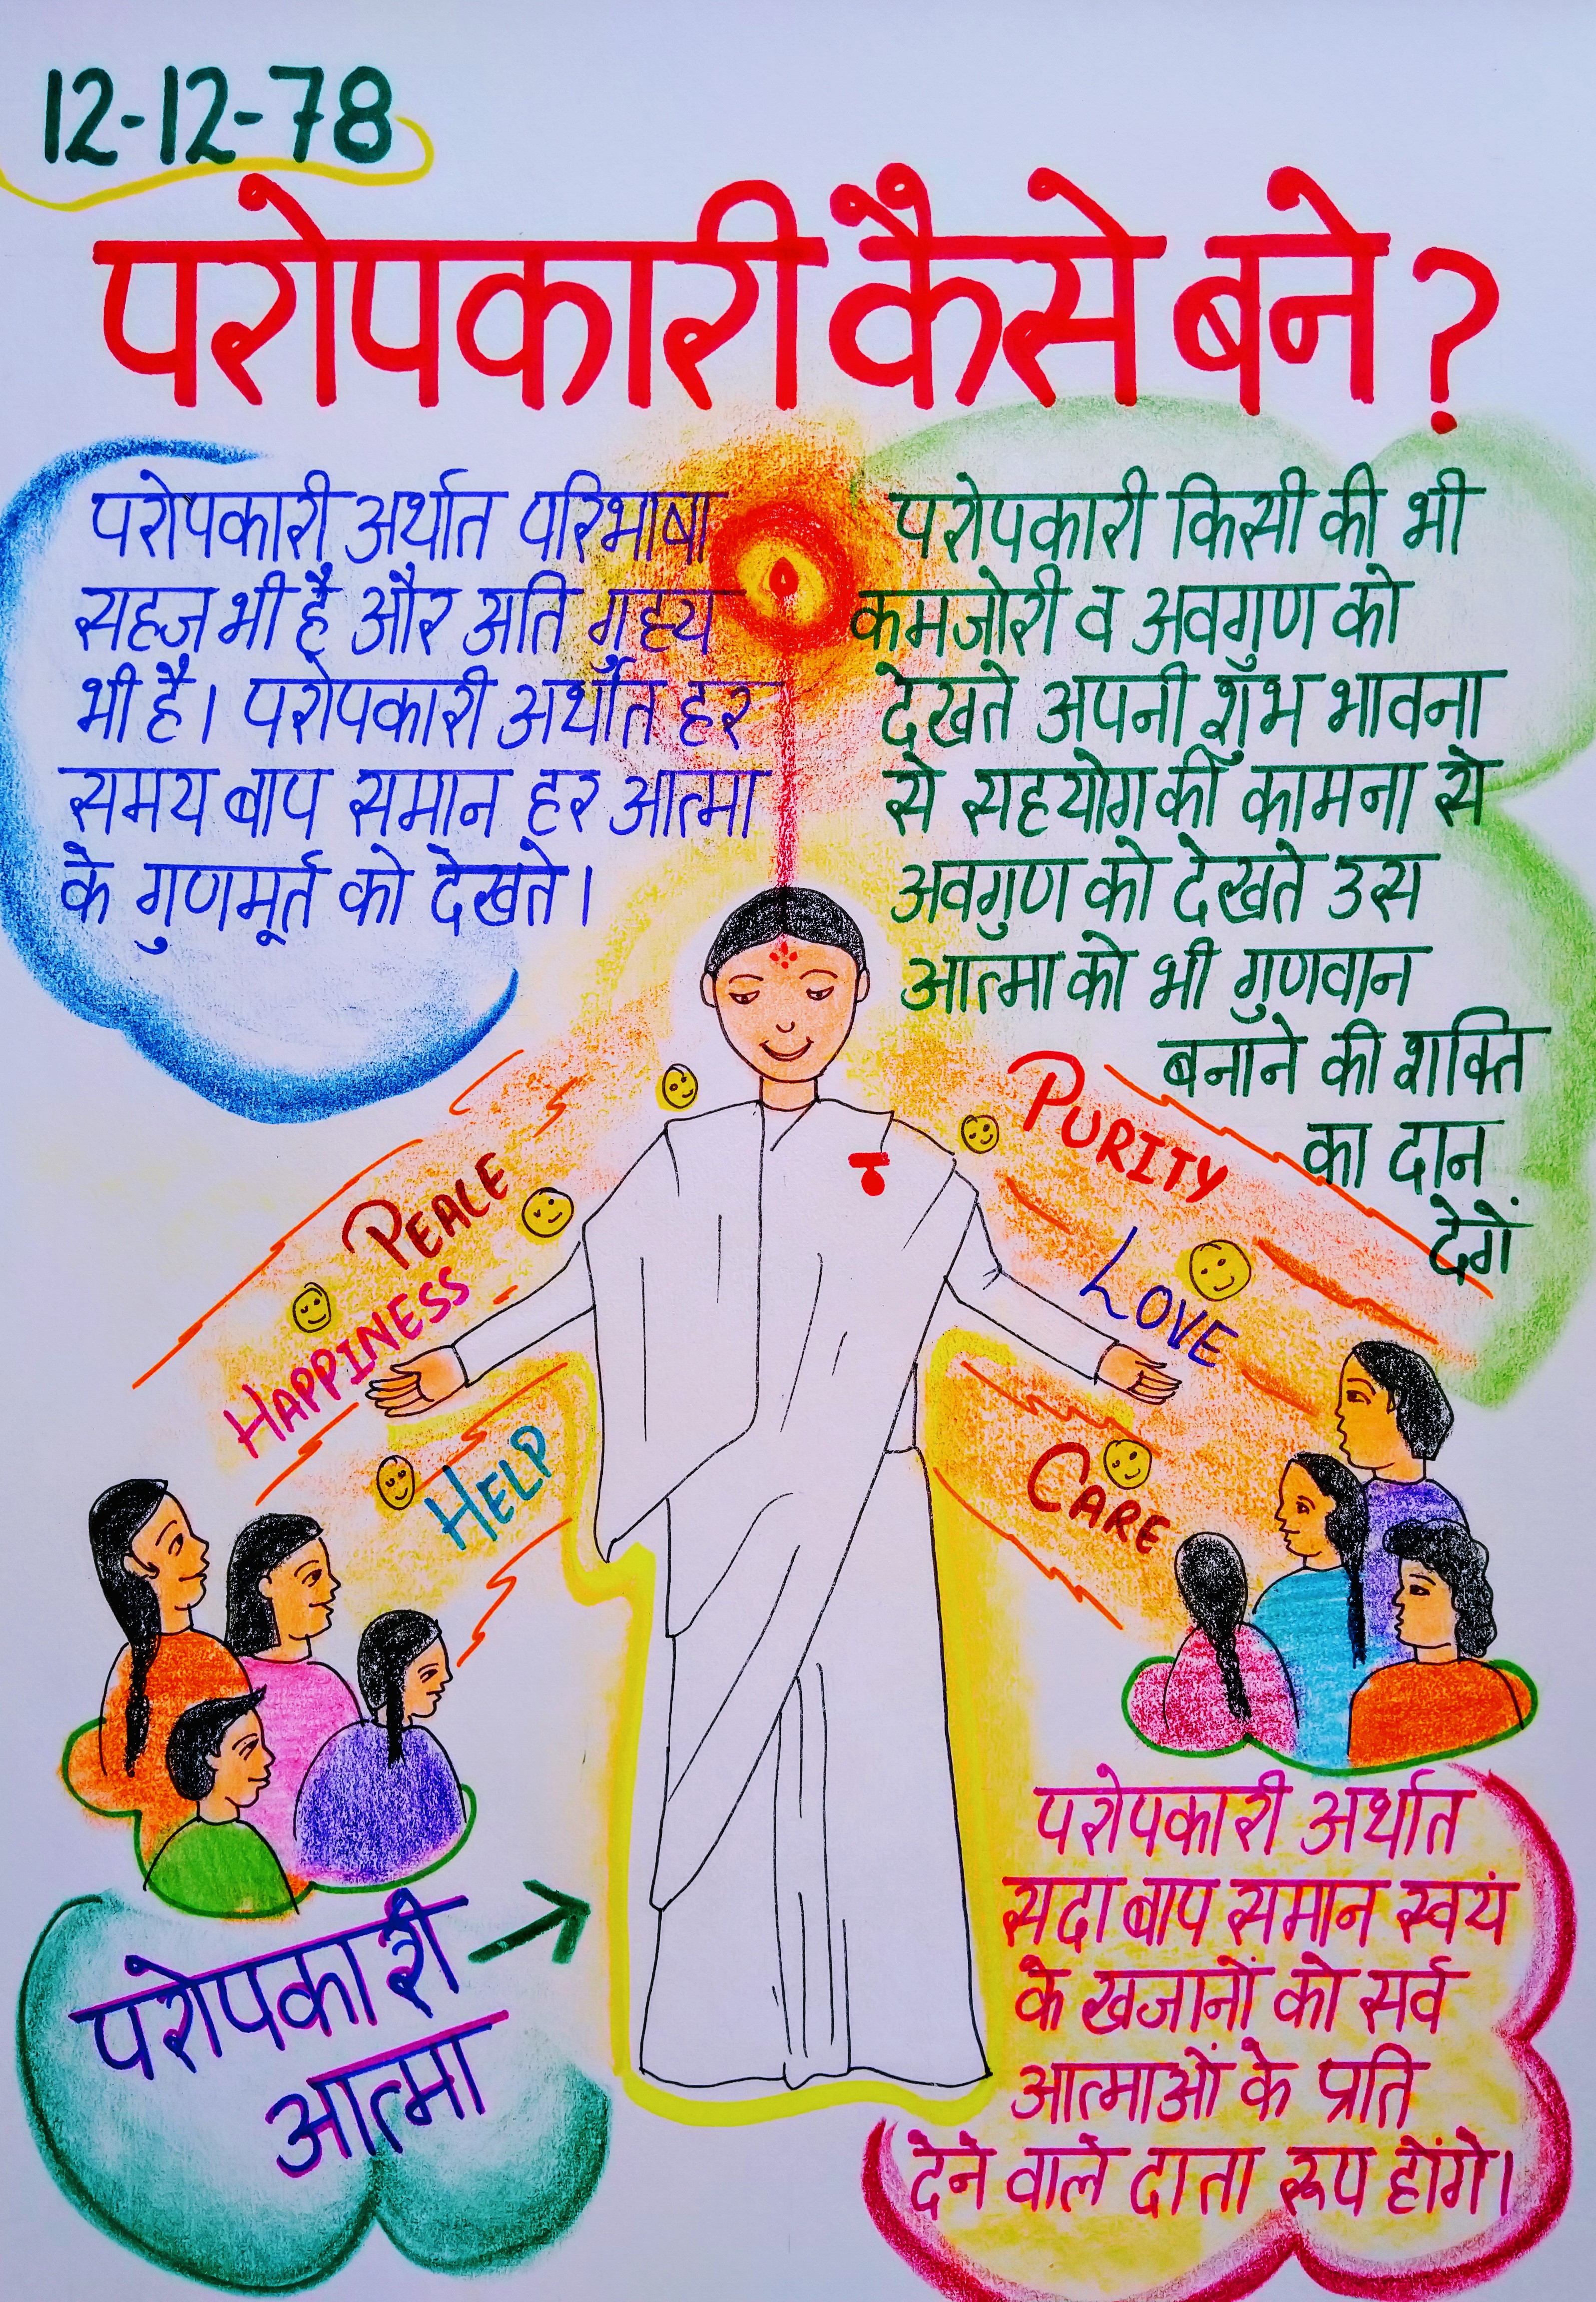 12-12-78
परोपकारी कैसे बने ?
परोपकारी अर्थात परिभाषा
सहज भी है और अति गुह्य
भी है। परोपकारी अर्थात हर
समय बाप समान हर आत्मा
के गुणमूर्त को देखते।
परोपकारी किसी की भी
कमजोरी व अवगुण को
देखते अपनी शुभ भावना
से सहयोग की कामना से
अवगुण को देखते उस
आत्मा को भी गुणवान
बनाने की शक्ति
का दान
देगें
PEACE
HAPPINESS
HELP
PURITY
LOVE
CARE
परोपकारी
आत्मा
परोपकारी अर्थात
सदा बाप समान स्वयं
के खजानों को सर्व
आत्माओं के प्रति
देने वाले दाता रूप होंगे।